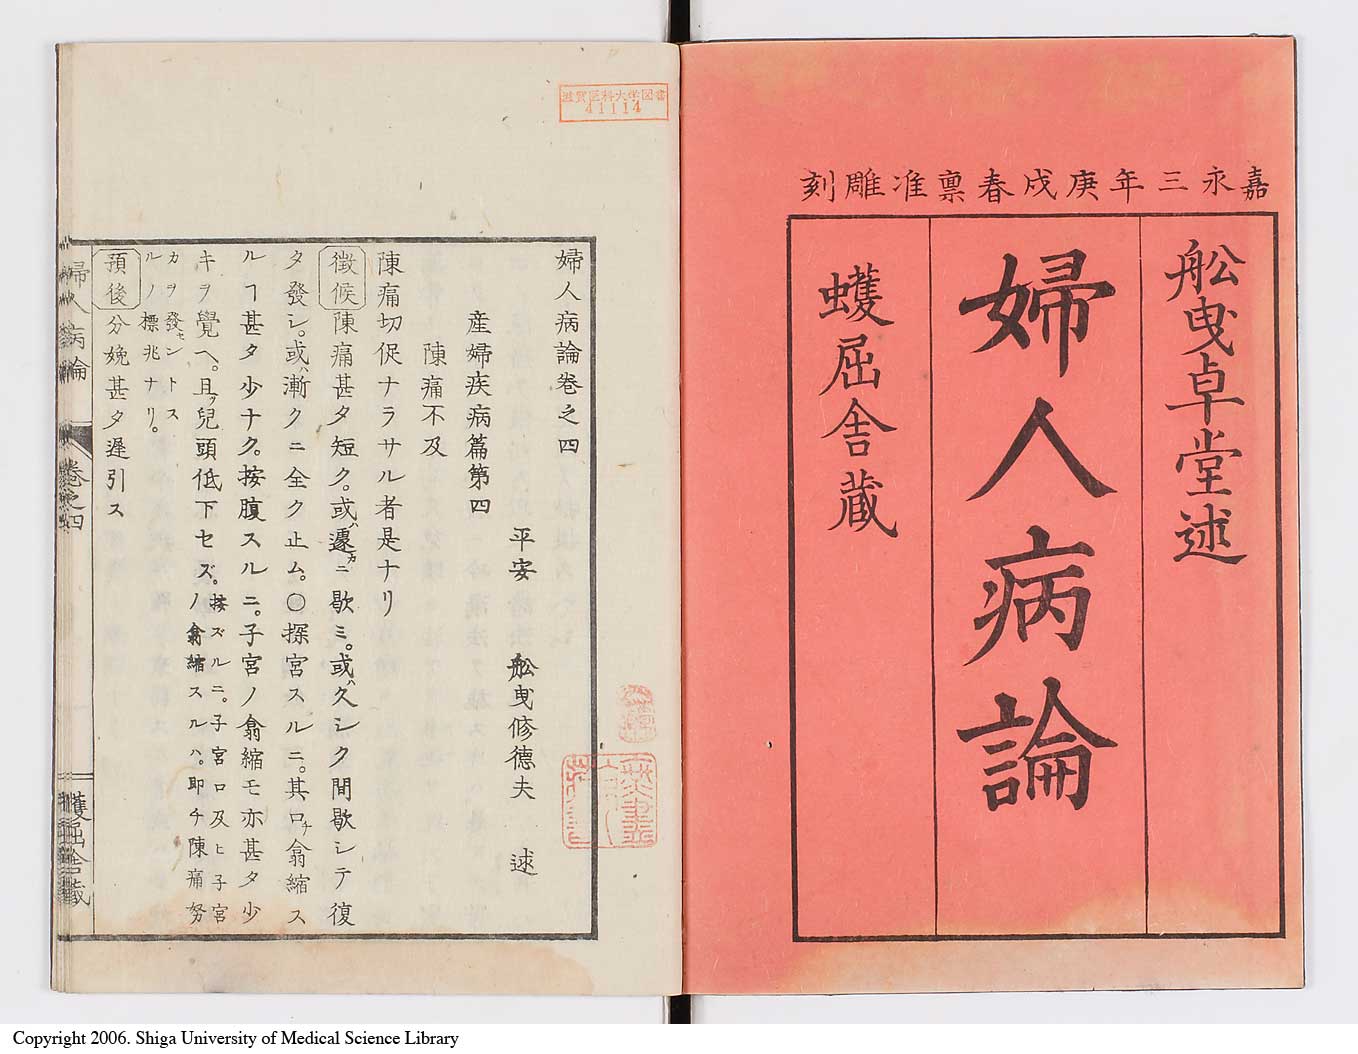 嘉永三年庚戌春稟准雕刻
舩曳卓堂述
婦人病論
蠖屈舍藏
滋賀医科大学図書
41114
婦人病論卷之四
平安 舩曳修德夫 述
産婦疾病篇第四
陳痛不及
陳痛切促ナラサル者是ナリ
徵候 陳痛甚タ短ク。或ハ遽カニ歇ミ。或ハ久シク間歇シテ復
タ發シ。或ハ漸クニ全ク止ム。〇探宮スルニ。其口チ翕縮ス
ルヿ甚タ少ナク。按腹スルニ。子宮ノ翕縮モ亦甚タ少
キヲ覺ヘ。且ツ兒頭低下セズ。按ズルニ。子宮口及ヒ子宮
ノ翕縮スルハ。即チ陳痛努
カヲ發セントス
ルノ標兆ナリ。
預後 分娩甚タ遲引ス
婦人病論
卷之四
蠖屈舍藏
Copyright 2006. Shiga University of Medical Science Library